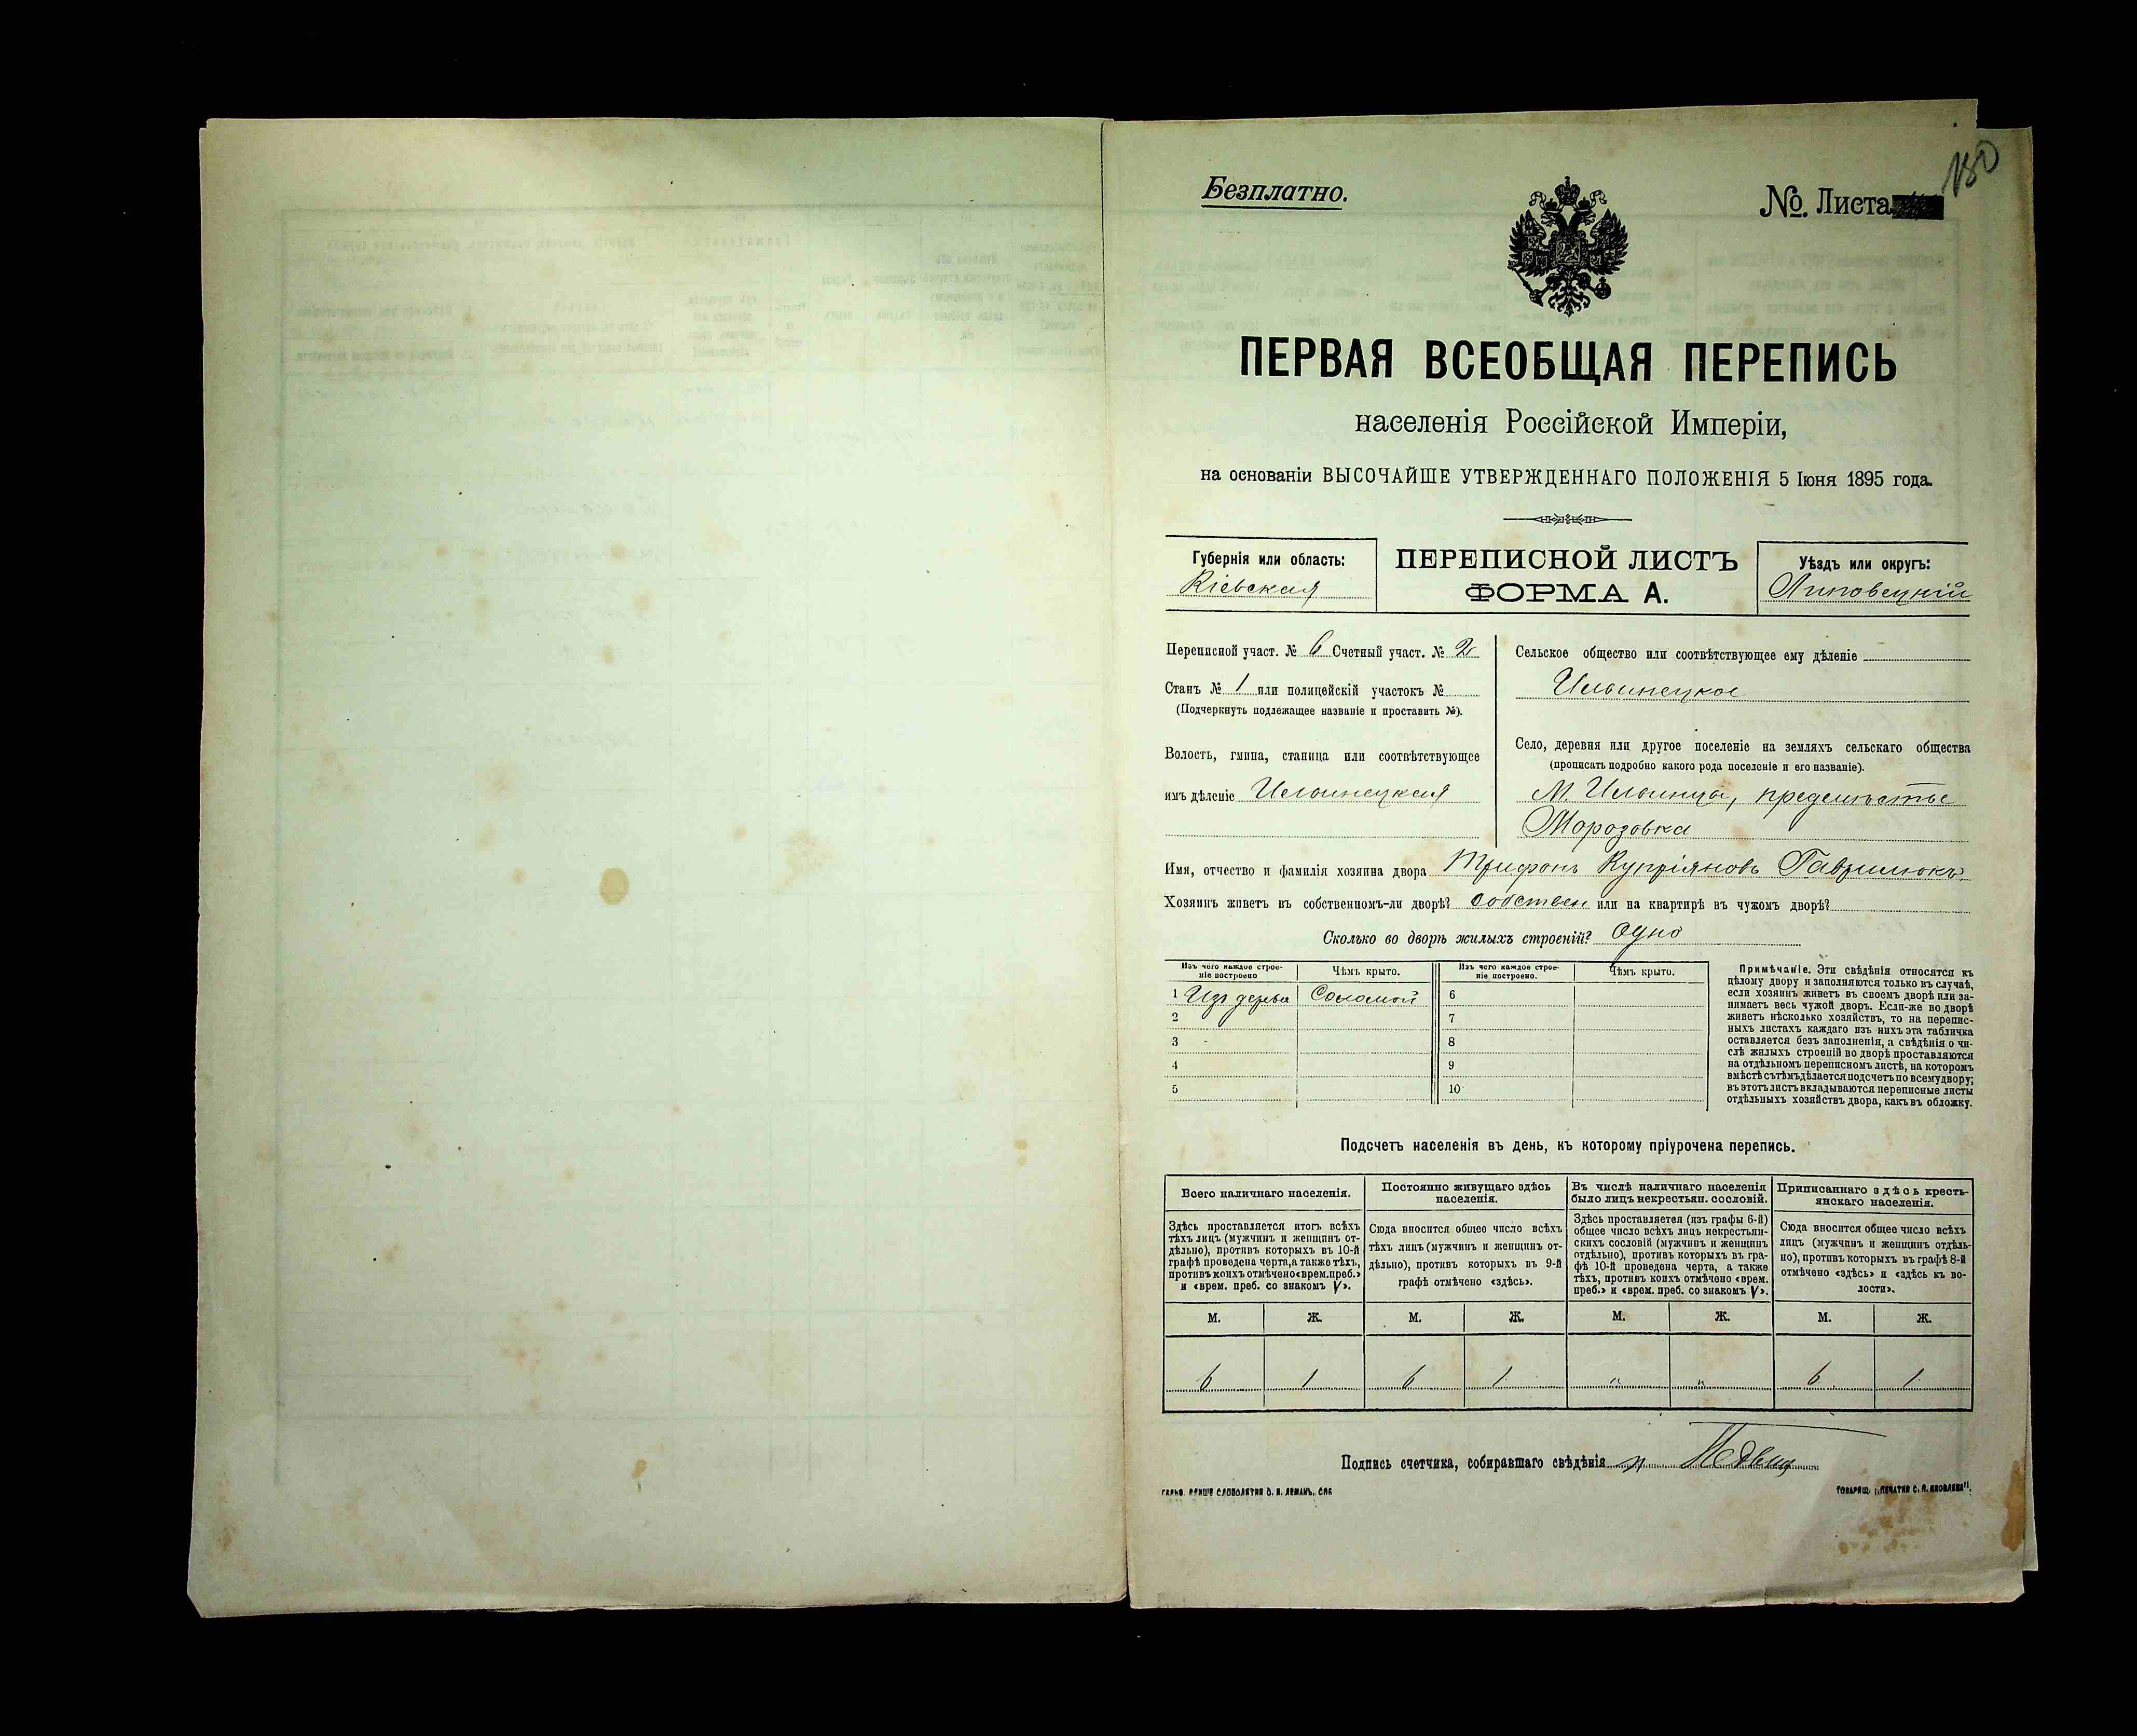 150
Безплатно.
№. Листа
ПЕРВАЯ ВСЕОБЩАЯ ПЕРЕПИСЬ
населенія Россійской Имперіи,
на основаніи ВЫСОЧАЙШЕ УТВЕРЖДЕННАГО ПОЛОЖЕНІЯ 5 Іюня 1895 года.
Губернія или область:
Кіевская
ПЕРЕПИСНОЙ ЛИСТЪ
ФОРМА А.
Уѣздъ или округъ:
Липовецкій
Переписной участ. № 6 Счетный участ. № 2
Станъ № 1 или полицейскій участокъ №
(Подчеркнуть подлежащее названіе и проставить №).
Волость, гмина, станица или соотвѣтствующее
имъ дѣленіе Ильинецкая
Сельское общество или соотвѣтствующее ему дѣленіе
Ильинецкое
Село, деревня или другое поселеніе на земляхъ сельскаго общества
(прописать подробно какого рода поселеніе и его названіе).
М. Ильинцы, предмѣстье
Морозовка
Имя, отчество и фамилія хозяина двора Трифонъ Купріяновъ Гаврилюкъ
Хозяинъ живетъ въ собственномъ-ли дворѣ? собствен или на квартирѣ въ чужомъ дворѣ?
Сколько во дворѣ жилыхъ строеній? Одно
Изъ чего каждое строе-
ніе построено
Чѣмъ крыто.
Изъ чего каждое строе-
ніе построено.
Чѣмъ крыто.
1 Изъ дерева Соломой 6
2 7
3 8
4 9
5 10
Примѣчаніе. Эти свѣдѣнія относятся къ
цѣлому двору и заполняются только въ случаѣ,
если хозяинъ живетъ въ своемъ дворѣ или за-
нимаетъ весь чужой дворъ. Если-же во дворѣ
живетъ нѣсколько хозяйствъ, то на перепис-
ныхъ листахъ каждаго изъ нихъ эта табличка
оставляется безъ заполненія, а свѣдѣнія о чи-
слѣ жилыхъ строеній во дворѣ проставляются
на отдѣльномъ переписномъ листѣ, на которомъ
вмѣстѣ съ тѣмъ дѣлается подсчетъ по всему двору;
въ этотъ листъ вкладываются переписные листы
отдѣльныхъ хозяйствъ двора, какъ въ обложку.
Подсчетъ населенія въ день, къ которому пріурочена перепись.
Всего наличнаго населенія.
Здѣсь проставляется итогъ всѣхъ
тѣхъ лицъ (мужчинъ и женщинъ от-
дѣльно), противъ которыхъ въ 10-й
графѣ проведена черта, а также тѣхъ,
противъ коихъ отмѣчено «врем. преб.»
и «врем. преб. со знакомъ V».
Постоянно живущаго здѣсь
населенія.
Сюда вносится общее число всѣхъ
тѣхъ лицъ (мужчинъ и женщинъ от-
дѣльно), противъ которыхъ въ 9-й
графѣ отмѣчено «здѣсь».
Въ числѣ наличнаго населенія
было лицъ некрестьян. сословій.
Здѣсь проставляется (изъ графы 6-й)
общее число всѣхъ лицъ некрестьян-
скихъ сословій (мужчинъ и женщинъ
отдѣльно), противъ которыхъ въ гра-
фѣ 10-й проведена черта, а также
тѣхъ, противъ коихъ отмѣчено «врем.
преб.» и «врем. преб. со знакомъ V».
Приписаннаго здѣсь кресть-
янскаго населенія.
Сюда вносится общее число всѣхъ
лицъ (мужчинъ и женщинъ отдѣль-
но), противъ которыхъ въ графѣ 8-й
отмѣчено «здѣсь» и «здѣсь къ во-
лости».
М. Ж. М. Ж. М. Ж. М. Ж.
6 1 6 1 " " 6 1
Подпись счетчика, собиравшаго свѣдѣнія